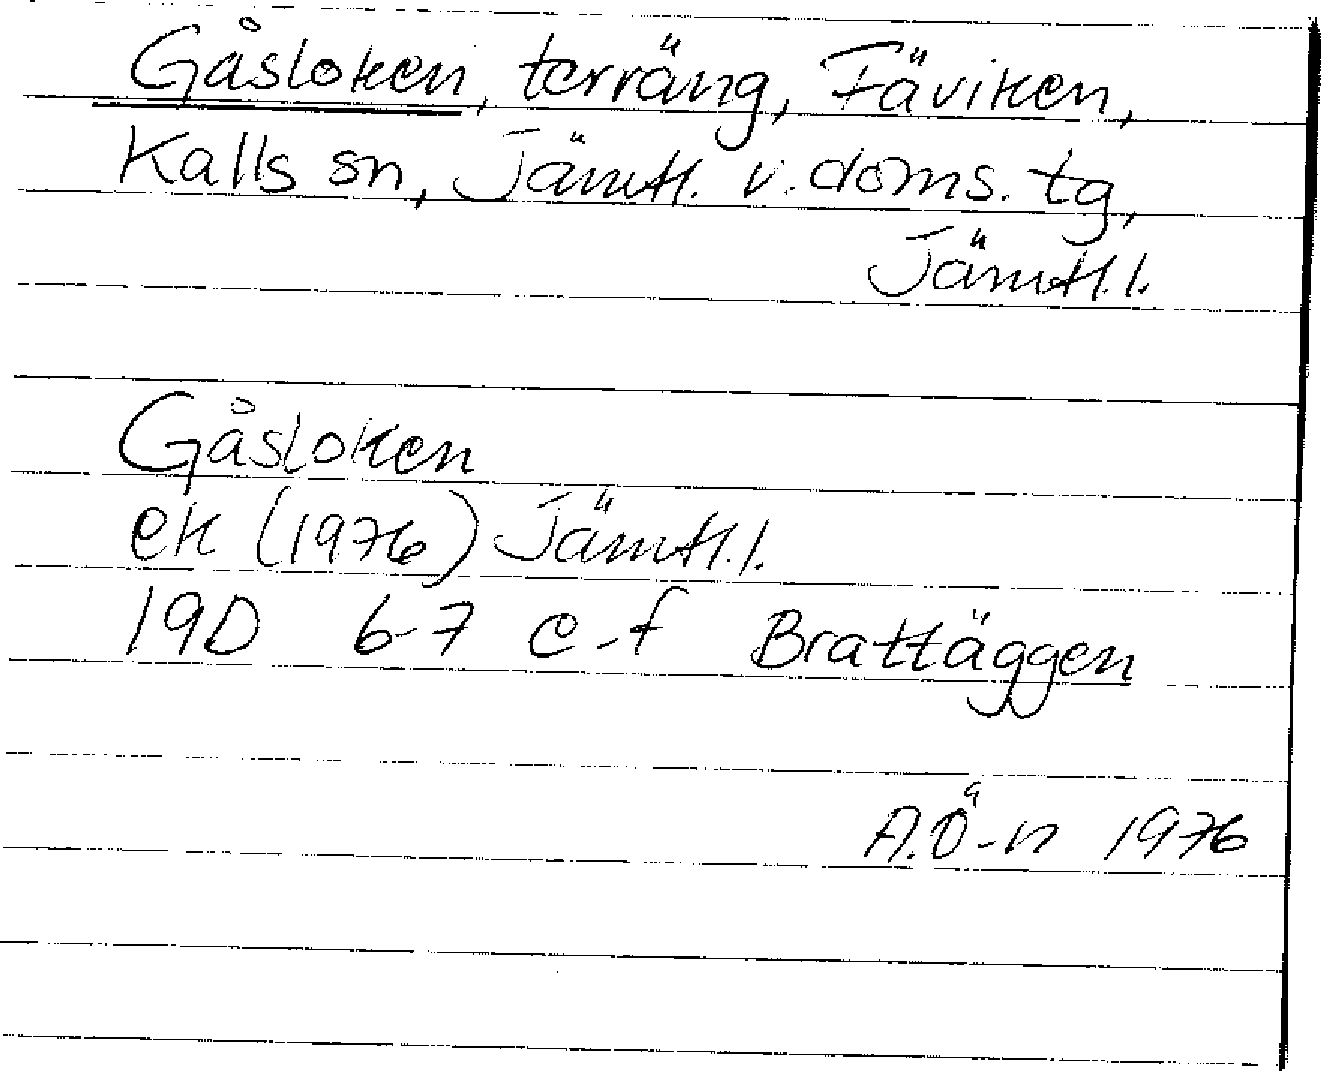 Gåsloken, terräng, Fäviken,
Kalls sn, Jämtl. v. doms. tg,
Jämtl. l.
Gåsloken
ek (1976) Jämtl. l.
19D 6-7 e-f Brattäggen
A.Ö-n 1976